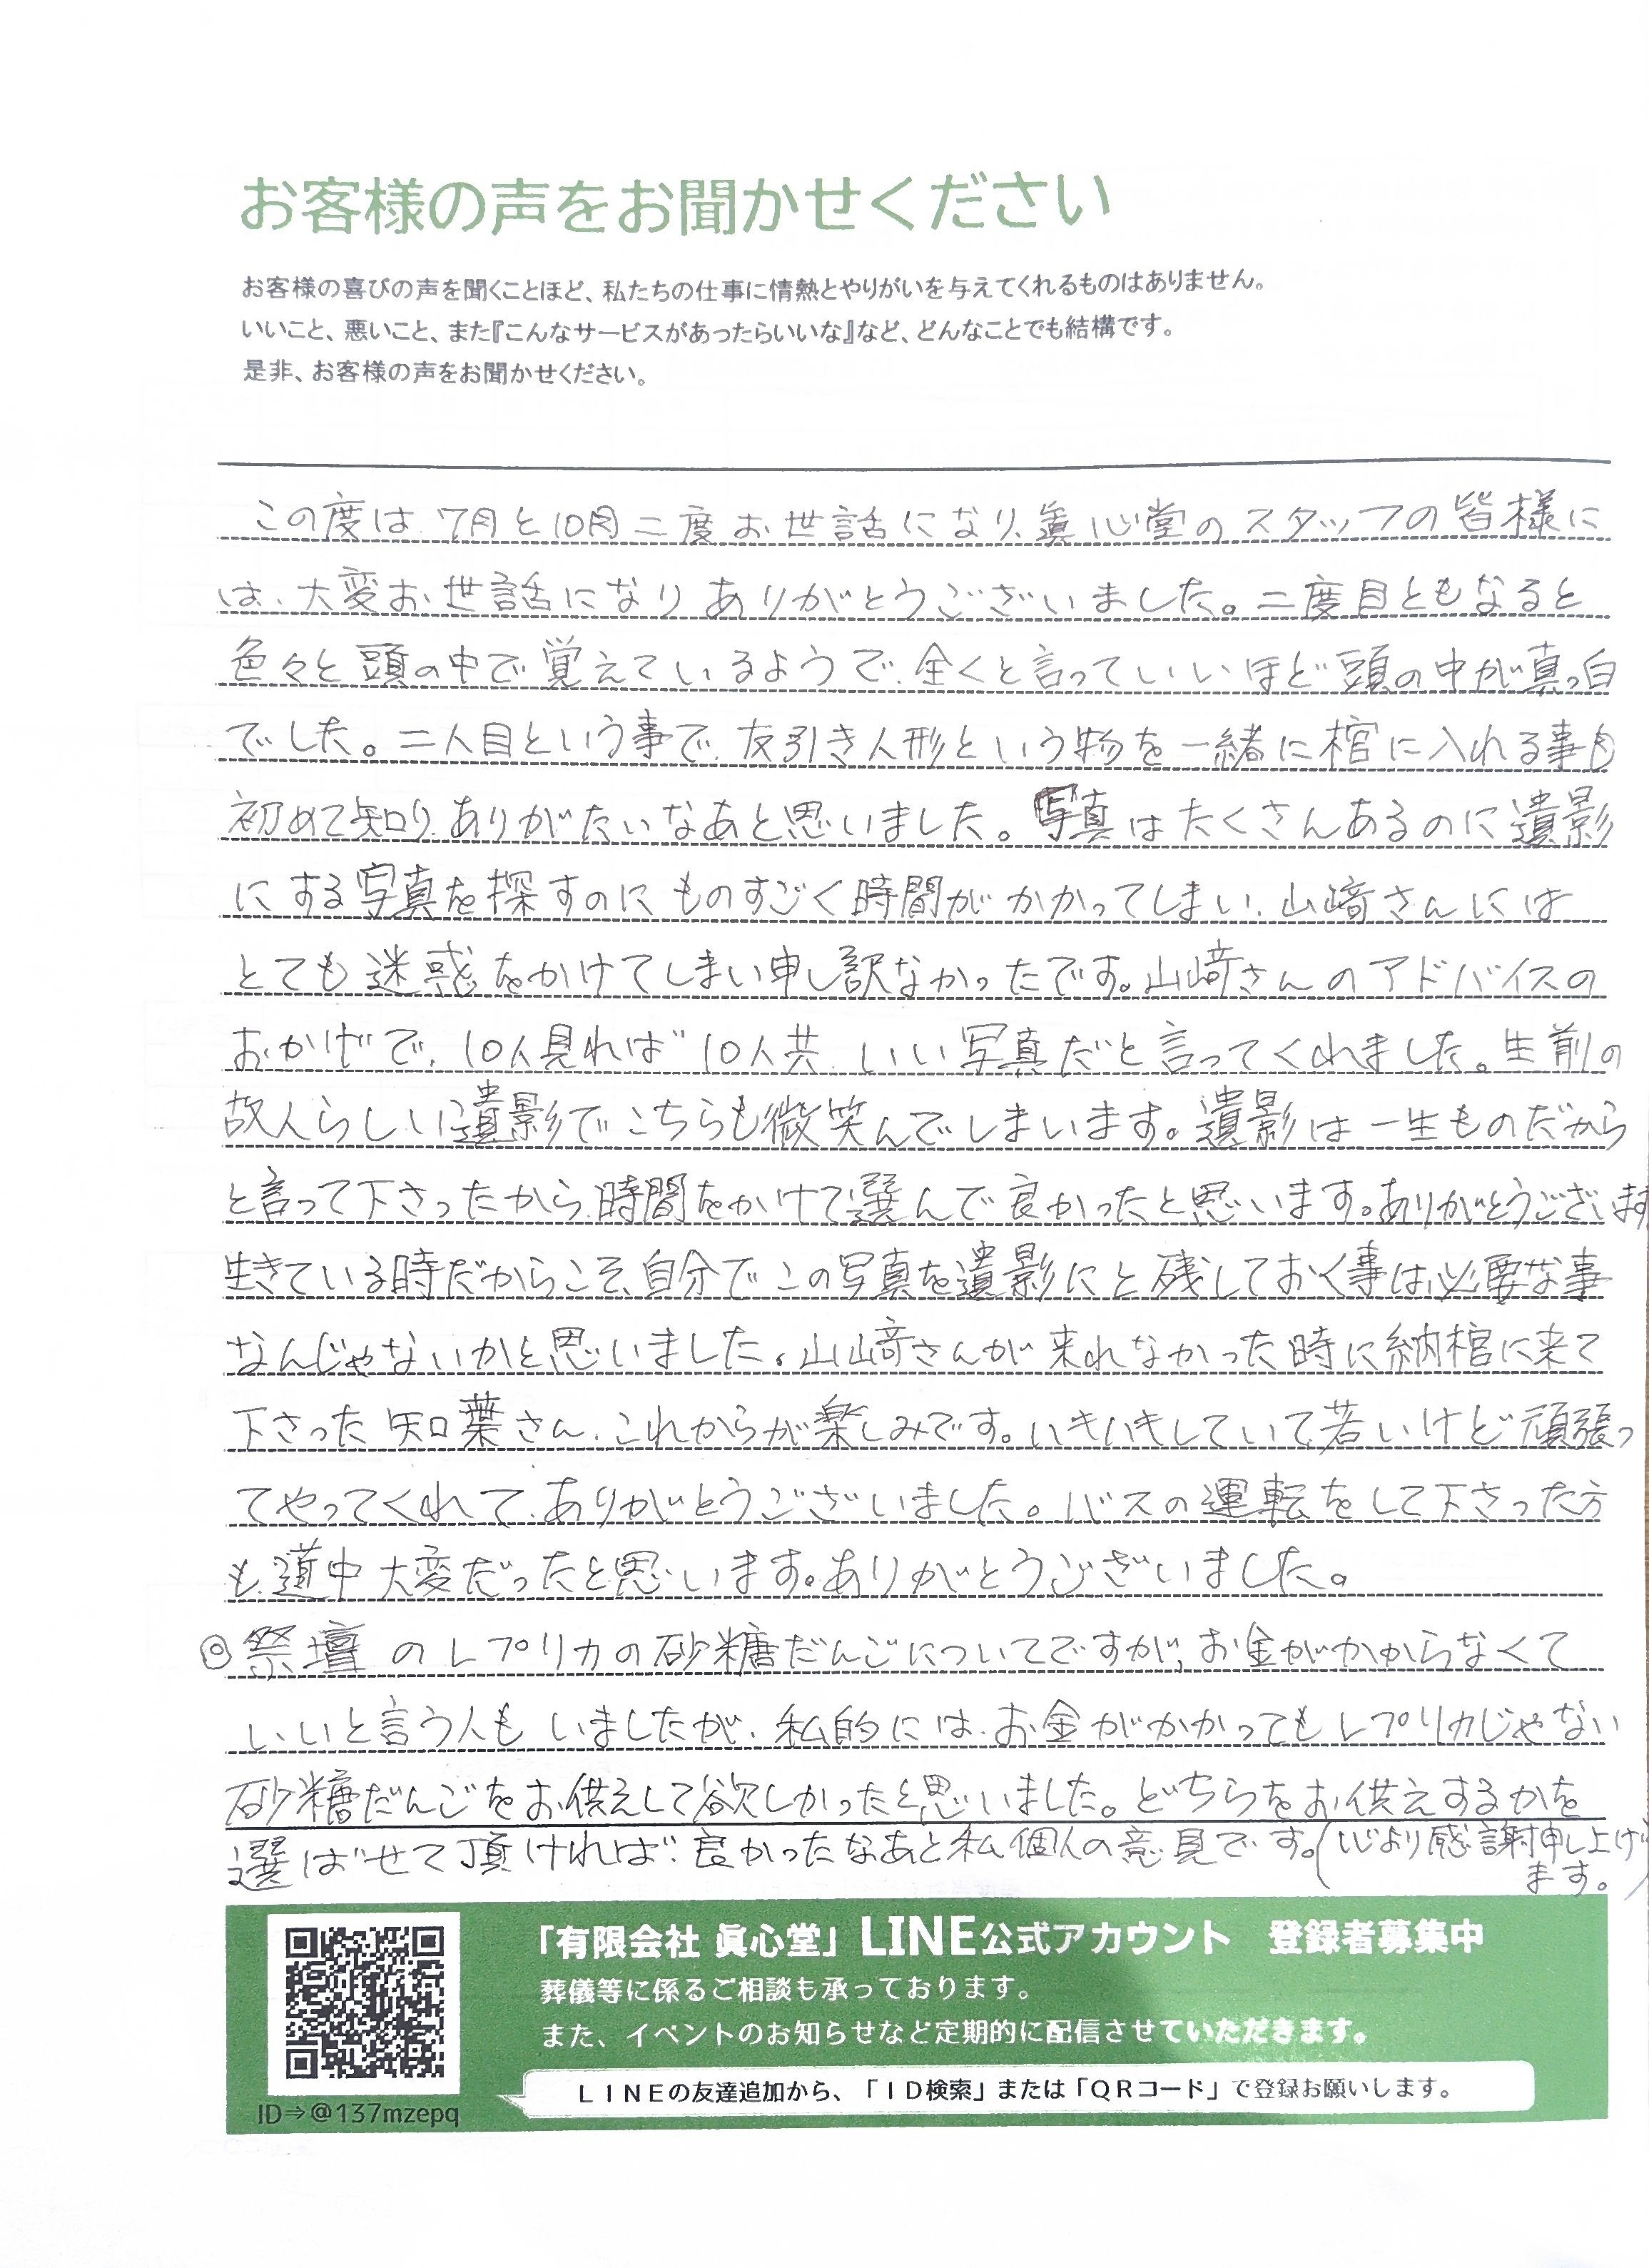 お客様の声をお聞かせください
お客様の喜びの声を聞くことほど、私たちの仕事に情熱とやりがいを与えてくれるものはありません。
いいこと、悪いこと、また『こんなサービスがあったらいいな』など、どんなことでも結構です。
是非、お客様の声をお聞かせください。
この度は、7月と10月二度お世話になり、眞心堂のスタッフの皆様に
は、大変お世話になりありがとうございました。二度目ともなると
色々と頭の中で覚えているようで、全くと言っていいほど頭の中が真っ白
でした。二人目という事で、友引き人形という物を一緒に棺に入れる事も
初めて知り、ありがたいなあと思いました。写真はたくさんあるのに遺影
にする写真を探すのにものすごく時間がかかってしまい、山﨑さんには
とても迷惑をかけてしまい申し訳なかったです。山﨑さんのアドバイスの
おかげで、10人見れば10人共、いい写真だと言ってくれました。生前の
故人らしい遺影でこちらも微笑んでしまいます。遺影は一生ものだから
と言って下さったから、時間をかけて選んで良かったと思います。ありがとうございます
生きている時だからこそ、自分でこの写真を遺影にと残しておく事は、必要な事
なんじゃないかと思いました。山﨑さんが来れなかった時に納棺に来て
下さった知葉さん、これからが楽しみです。ハキハキしていて、若いけど頑張っ
てやってくれて、ありがとうございました。バスの運転をして下さった方
も、道中大変だったと思います。ありがとうございました。
◎祭壇のレプリカの砂糖だんごについてですが、お金がかからなくて
いいと言う人もいましたが、私的には、お金がかかってもレプリカじゃない
砂糖だんごをお供えして欲しかったと思いました。どちらをお供えするかを
選ばせて頂ければ、良かったなあと私個人の意見です。(心より感謝申し上げ
ます。)
「有限会社 眞心堂」LINE公式アカウント 登録者募集中
葬儀等に係るご相談も承っております。
また、イベントのお知らせなど定期的に配信させていただきます。
LINEの友達追加から、「ID検索」または「QRコード」で登録お願いします。
ID⇒@137mzepq